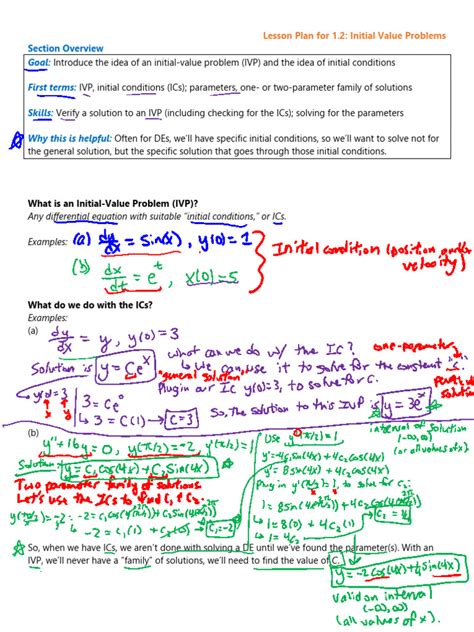 Lesson Plan for 1.2: Initial Value Problems
Section Overview
Goal: Introduce the idea of an initial-value problem (IVP) and the idea of initial conditions
First terms: IVP, initial conditions (ICs); parameters, one- or two-parameter family of solutions
Skills: Verify a solution to an IVP (including checking for the ICs); solving for the parameters
Why this is helpful: Often for DEs, we'll have specific initial conditions, so we'll want to solve not for
the general solution, but the specific solution that goes through those initial conditions.
What is an Initial-Value Problem (IVP)?
Any differential equation with suitable "initial conditions," or ICs.
Examples: (a) dy/dx = sin(x), y(0)=1
Initial condition (position and/or velocity)
(b) dx/dt = e^t, x(0)=5
What do we do with the ICs?
Examples:
(a) dy/dx = y, y(0)=3
what can we do w/ the IC?
one-parameter
Solution is y=Ce^x
↳ We can use it to solve for the constant C.
"general solution"
Plug in our IC y(0)=3, to solve for C.
↳ y(0)=3
3 = Ce^0
↳ 3 = C(1) → C=3
So, the solution to this IVP is y=3e^x
(b)
y''+16y=0, y(π/2)=-2, y'(π/2)=1
Solution: y=C1cos(4x)+C2sin(4x)
Two parameter family of solutions.
Let's use the ICs to find C1 & C2.
y(π/2)=-2: -2=C1cos(4(π/2))+C2sin(4(π/2))
-2=C1(1)+C2(0) → C1=-2
Use y'(π/2)=1
y'=-4C1sin(4x)+4C2cos(4x)
y'=8sin(4x)+4C2cos(4x)
Plug in y'(π/2)=1, to solve for C2:
1=8sin(4(π/2))+4C2cos(4(π/2))
1=8(0)+4C2(1)
1=4C2
C2=1/4
interval of solution
(-∞,∞)
(or all values of x)
So, when we have ICs, we aren't done with solving a DE until we've found the parameter(s). With an
IVP, we'll never have a "family" of solutions, we'll need to find the value of C.
y=-2cos(4x)+¼sin(4x)
valid on interval
(-∞,∞)
(all values of x).